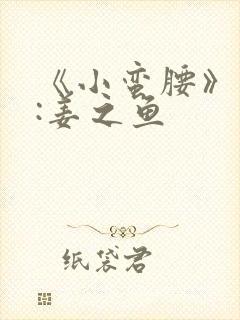 《小蛮腰》
:姜之鱼
纸袋君